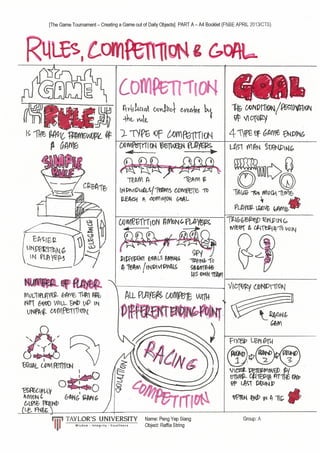 [The Game Tournament – Creating a Game out of Daily Objects]: PART A – A4 Booklet (FNBE APRIL 2013/CT3)
RULES, COMPETITION & GOAL
GAME
RULE
IS THE BASIC FRAMEWORK OF
A GAME
SIMPLE
RULE
CREATE
ELEGANCE
EASIER
UNDERSTANDING
IN PLAYERS
NUMBER OF PLAYER
MULTIPLAYER GAME THAT ARE
NOT GOOD WILL END UP IN
UNFAIR COMPETITION
EQUAL COMPETITION
ESPECIALLY
AMONG
CLOSE FRIEND
(I.E. FNBE)
GANG BANG
COMPETITION
Artificial conflict create by
the rule
2 TYPE OF COMPETITION
COMPETITION BETWEEN PLAYERS
TEAM A
TEAM B
INDIVIDUALLY/TEAMS COMPETE TO
REACH A COMMON GOAL
COMPETITION AMONG PLAYERS
DIFFERENT GOALS AMONG
A TEAM / INDIVIDUALS
SPY
TRYING TO
SABOTAGE
HIS OWN TEAM
ALL PLAYERS COMPETE WITH
DIFFERENT ENDING POINT
RACING
COMPETITION
GOAL
THE CONDITION/DESTINATION
OF VICTORY
4 TYPE OF GAME ENDING
LAST MAN STANDING
TAKE TOO MUCH TIME
PLAYER LEAVE GAME
TRIGGERED ENDING
MEET A CRITERIA TO WIN
VICTORY CONDITION
RACING
GAM
FIXED LENGTH
ROUND 1
ROUND 2
ROUND 3
VICTOR DETERMINED BY
OTHER CRITERIA AT THE END
OF LAST ROUND
OFTEN END IN A TIE
TAYLOR'S UNIVERSITY
Wisdom · Integrity · Excellence
Name: Peng Yep Siang
Object: Raffia String
Group: A